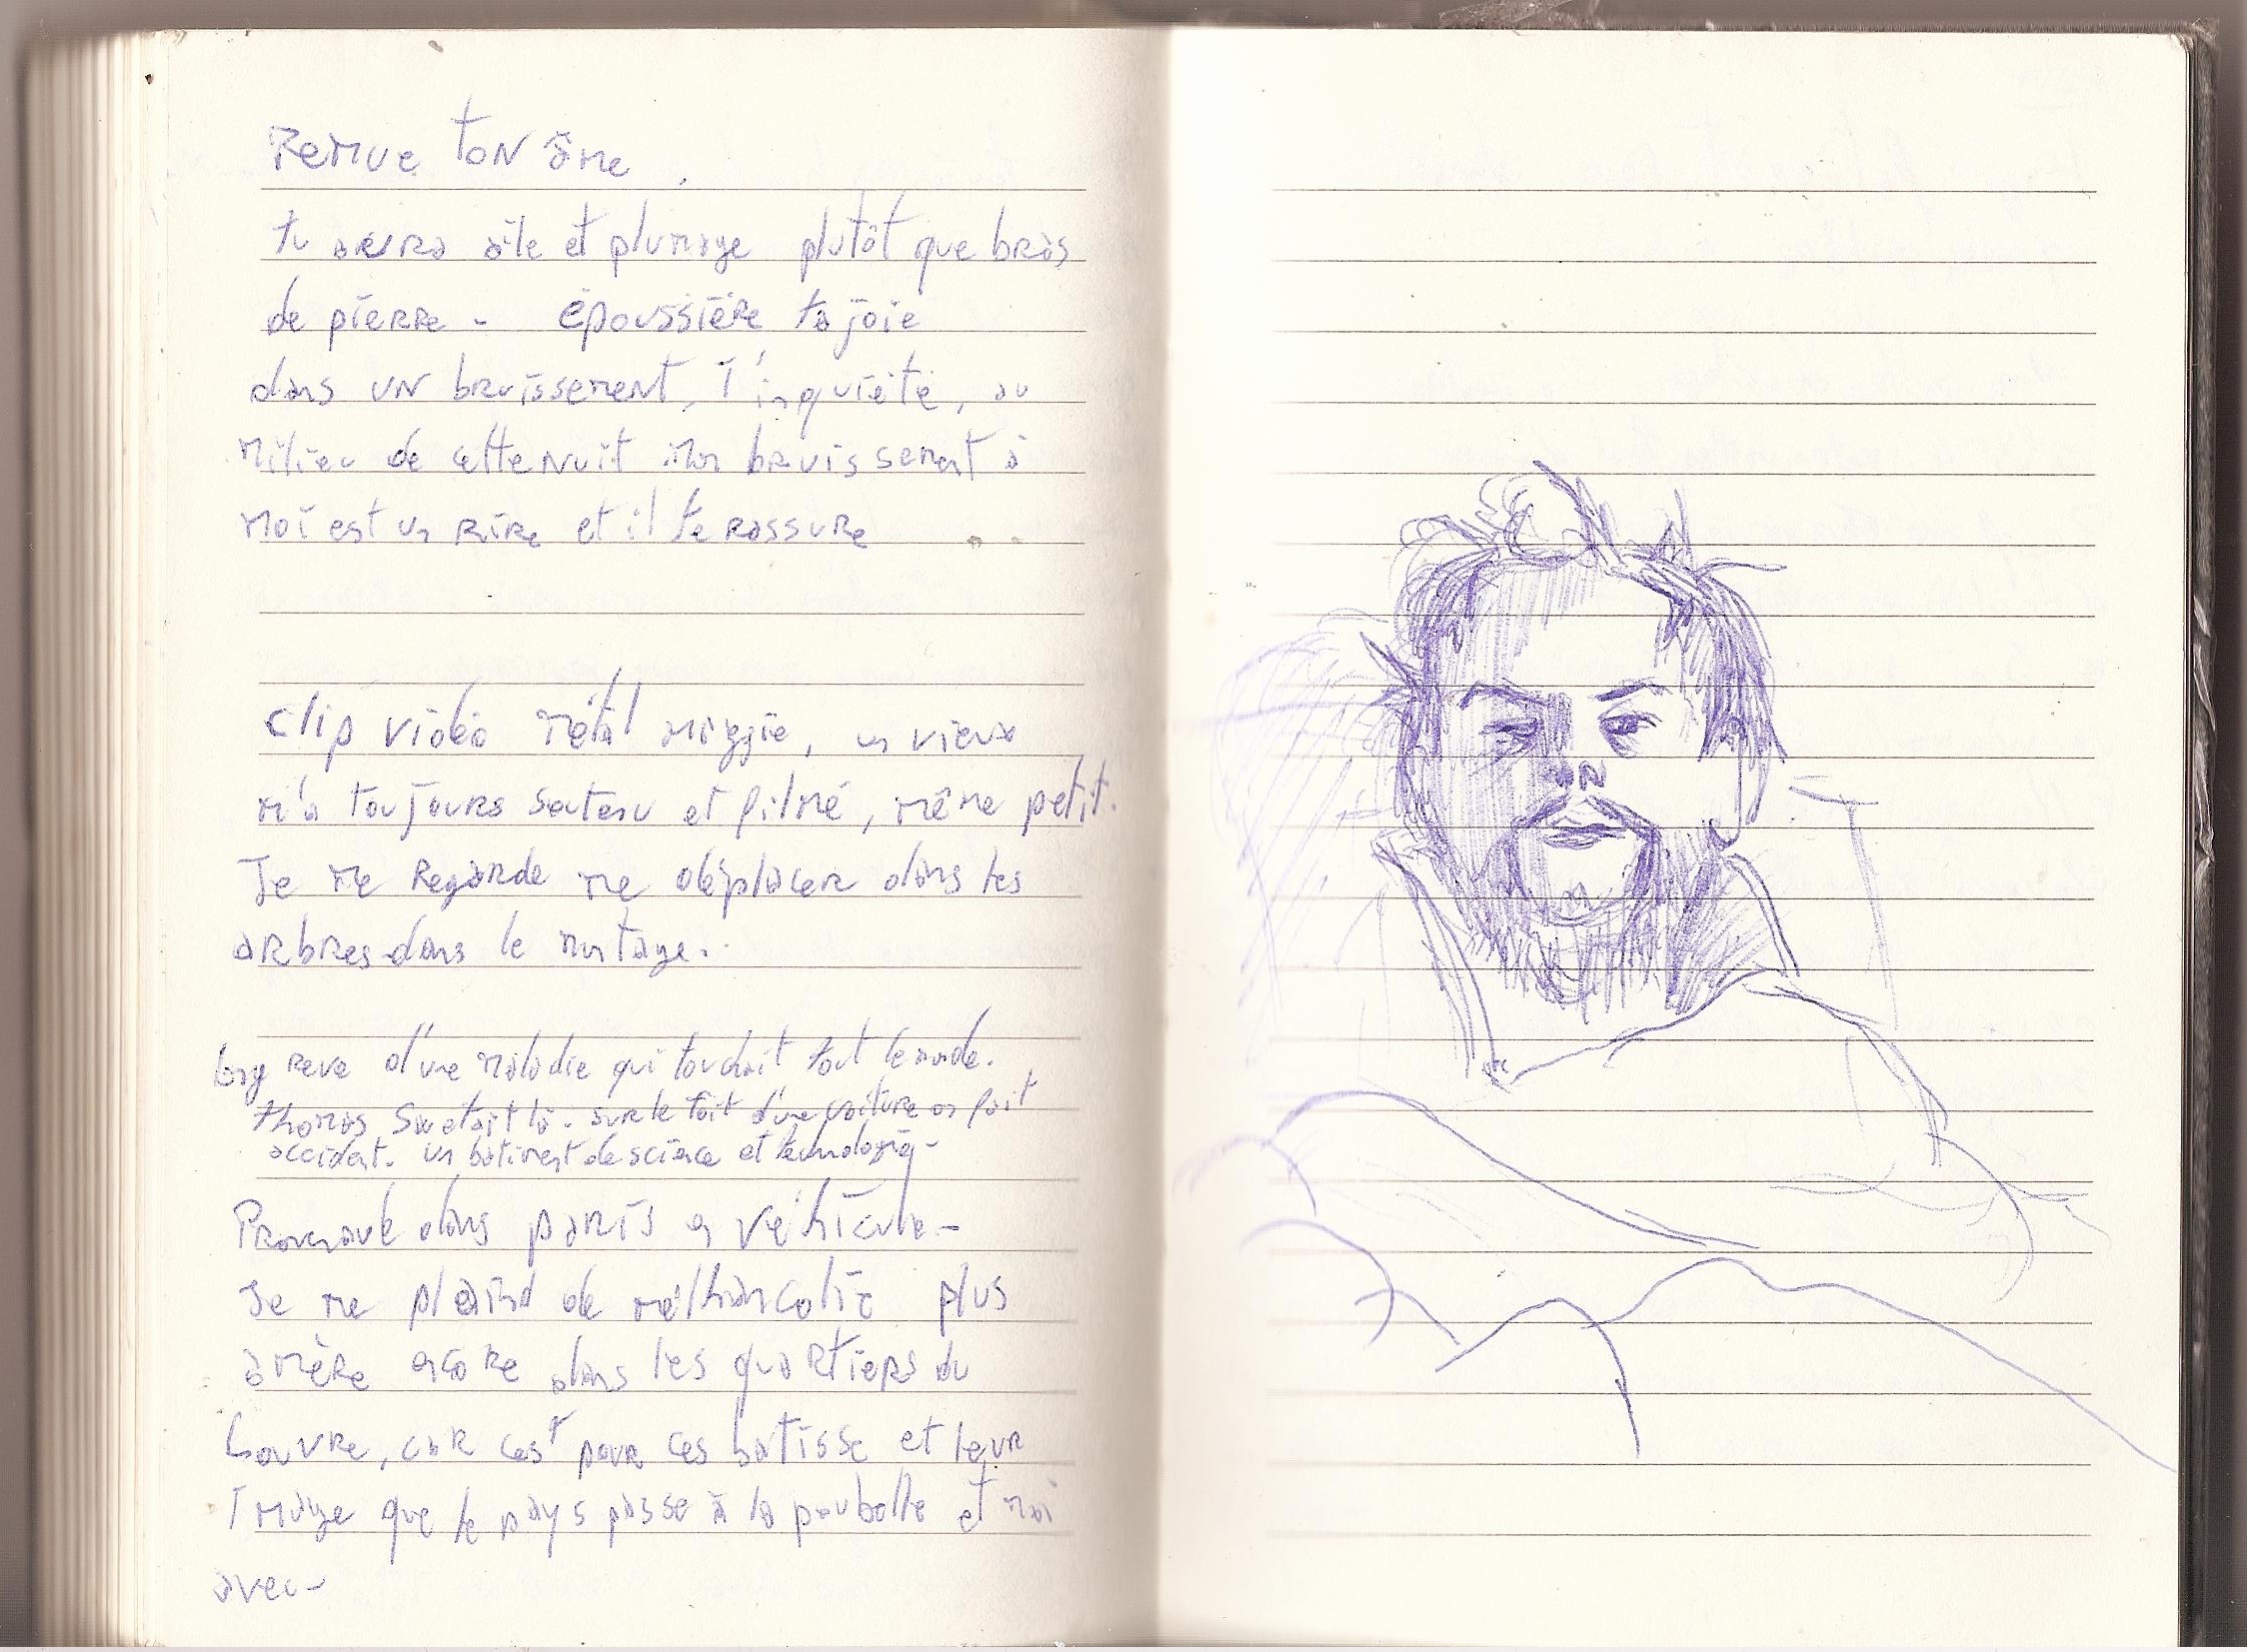 Remue ton âme,
tu aura aile et plumage plutôt que bras
de pierre - époussière ta joie
dans un bruissement, l'inquiété, au
milieu de cette nuit mon bruissement à
moi est un rire et il te rassure
Clip vidéo métal magie, un vieux
m'a toujours soutenu et filmé, même petit.
Je me regarde me déplacer dans les
arbres dans le montage.
Long reve d'une maladie qui touchait tout le monde.
thomas était là. sur le toit d'une voiture on fait
accident. un batiment de science et technologie -
Promenade dans paris en véhicule -
Je me plaind de mélhancolie plus
amère encore dans les quartiers du
Louvre, car cest pour ces batisse et leur
Image que le pays passe à la poubelle et moi
avec -